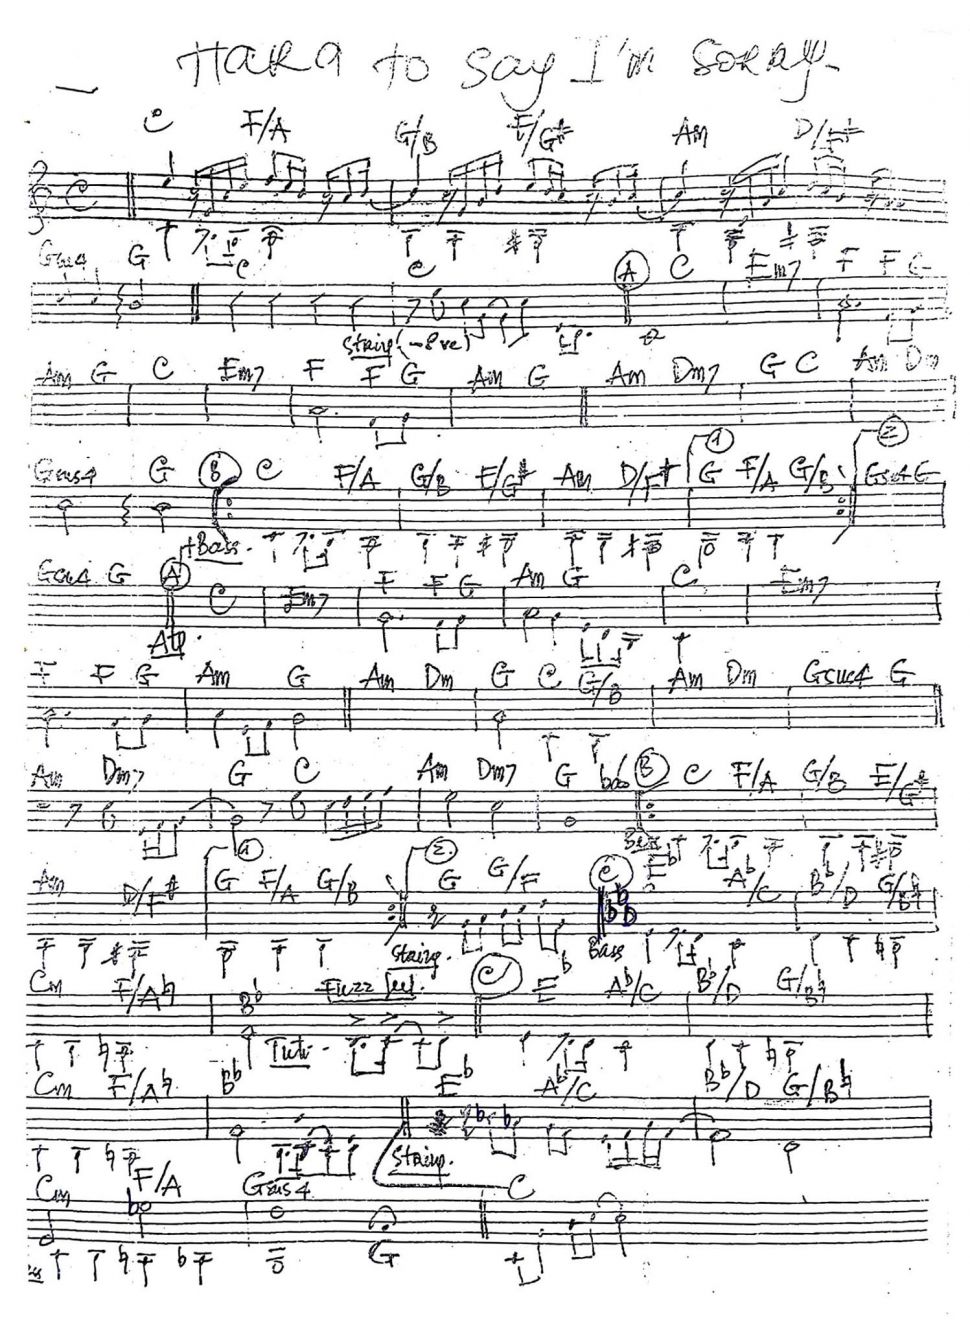 Hard to say I'm sorry
C F/A G/B E/G# Am D/F#
Gsus4 G C C A C Em7 F F G
String (-8ve)
Am G C Em7 F F G Am G Am Dm7 G C Am Dm
1 2
Gsus4 G B C F/A G/B E/G# Am D/F# G F/A G/B Gsus4 G
+Bass.
Gsus4 G A C Em7 F F G Am G C Em7
F F G Am G Am Dm G C G/B Am Dm Gsus4 G
Am Dm7 G C Am Dm7 G B C F/A G/B E/G#
Bass
1 2 C
Am D/F# G F/A G/B G G/F Eb Ab/C Bb/D G/B♮
String. Bass
Cm F/A♮ Bb Fuzz C' Eb Ab/C Bb/D G/B♮
Tuti.
Cm F/A♮ Bb Eb Ab/C Bb/D G/B♮
String.
Cm F/A Gsus4 C
G